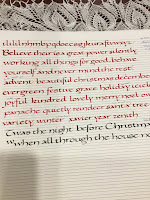 Believe there is a great power silently
working all things for good, behave
yourself and never mind the rest
advent beautiful christmas december
evergreen festive grace holiday icicles
joyful kindred lovely merry noel
panache quietly reindeer santa tree
variety winter xavier year zenith
Twas the night before Christmas
when all through the house